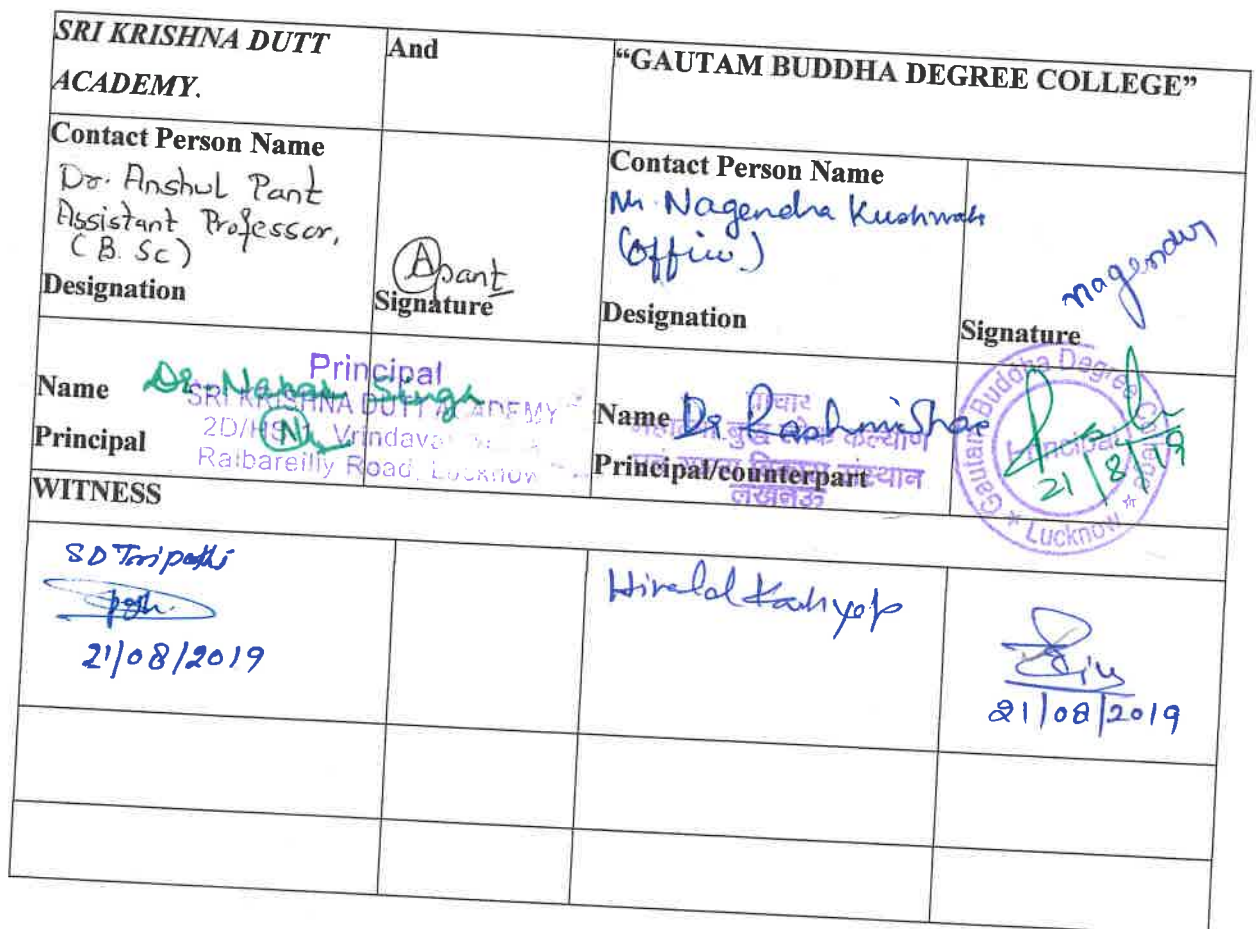 SRI KRISHNA DUTT
ACADEMY.
And
“GAUTAM BUDDHA DEGREE COLLEGE”
Contact Person Name
Dr. Anshul Pant
Assistant Professor,
(B. Sc)
Designation
Apant
Signature
Contact Person Name
Mr. Nagendra Kushwah
(Office)
Designation
nagender
Signature
Name
Principal
Principal
SRI KRISHNA DUTT ACADEMY
2D/HS-1, Vrindavan
Raibareilly Road, Lucknow
Dr. Singh
Name Dr Rashmi
Principal/counterpart
बुद्ध कल्याण
संस्थान
लखनऊ
Gautam Buddha Degree College
Principal
Lucknow
21/8/19
WITNESS
SD Tripathi
21/08/2019
Hiralal Kashyap
21/08/2019